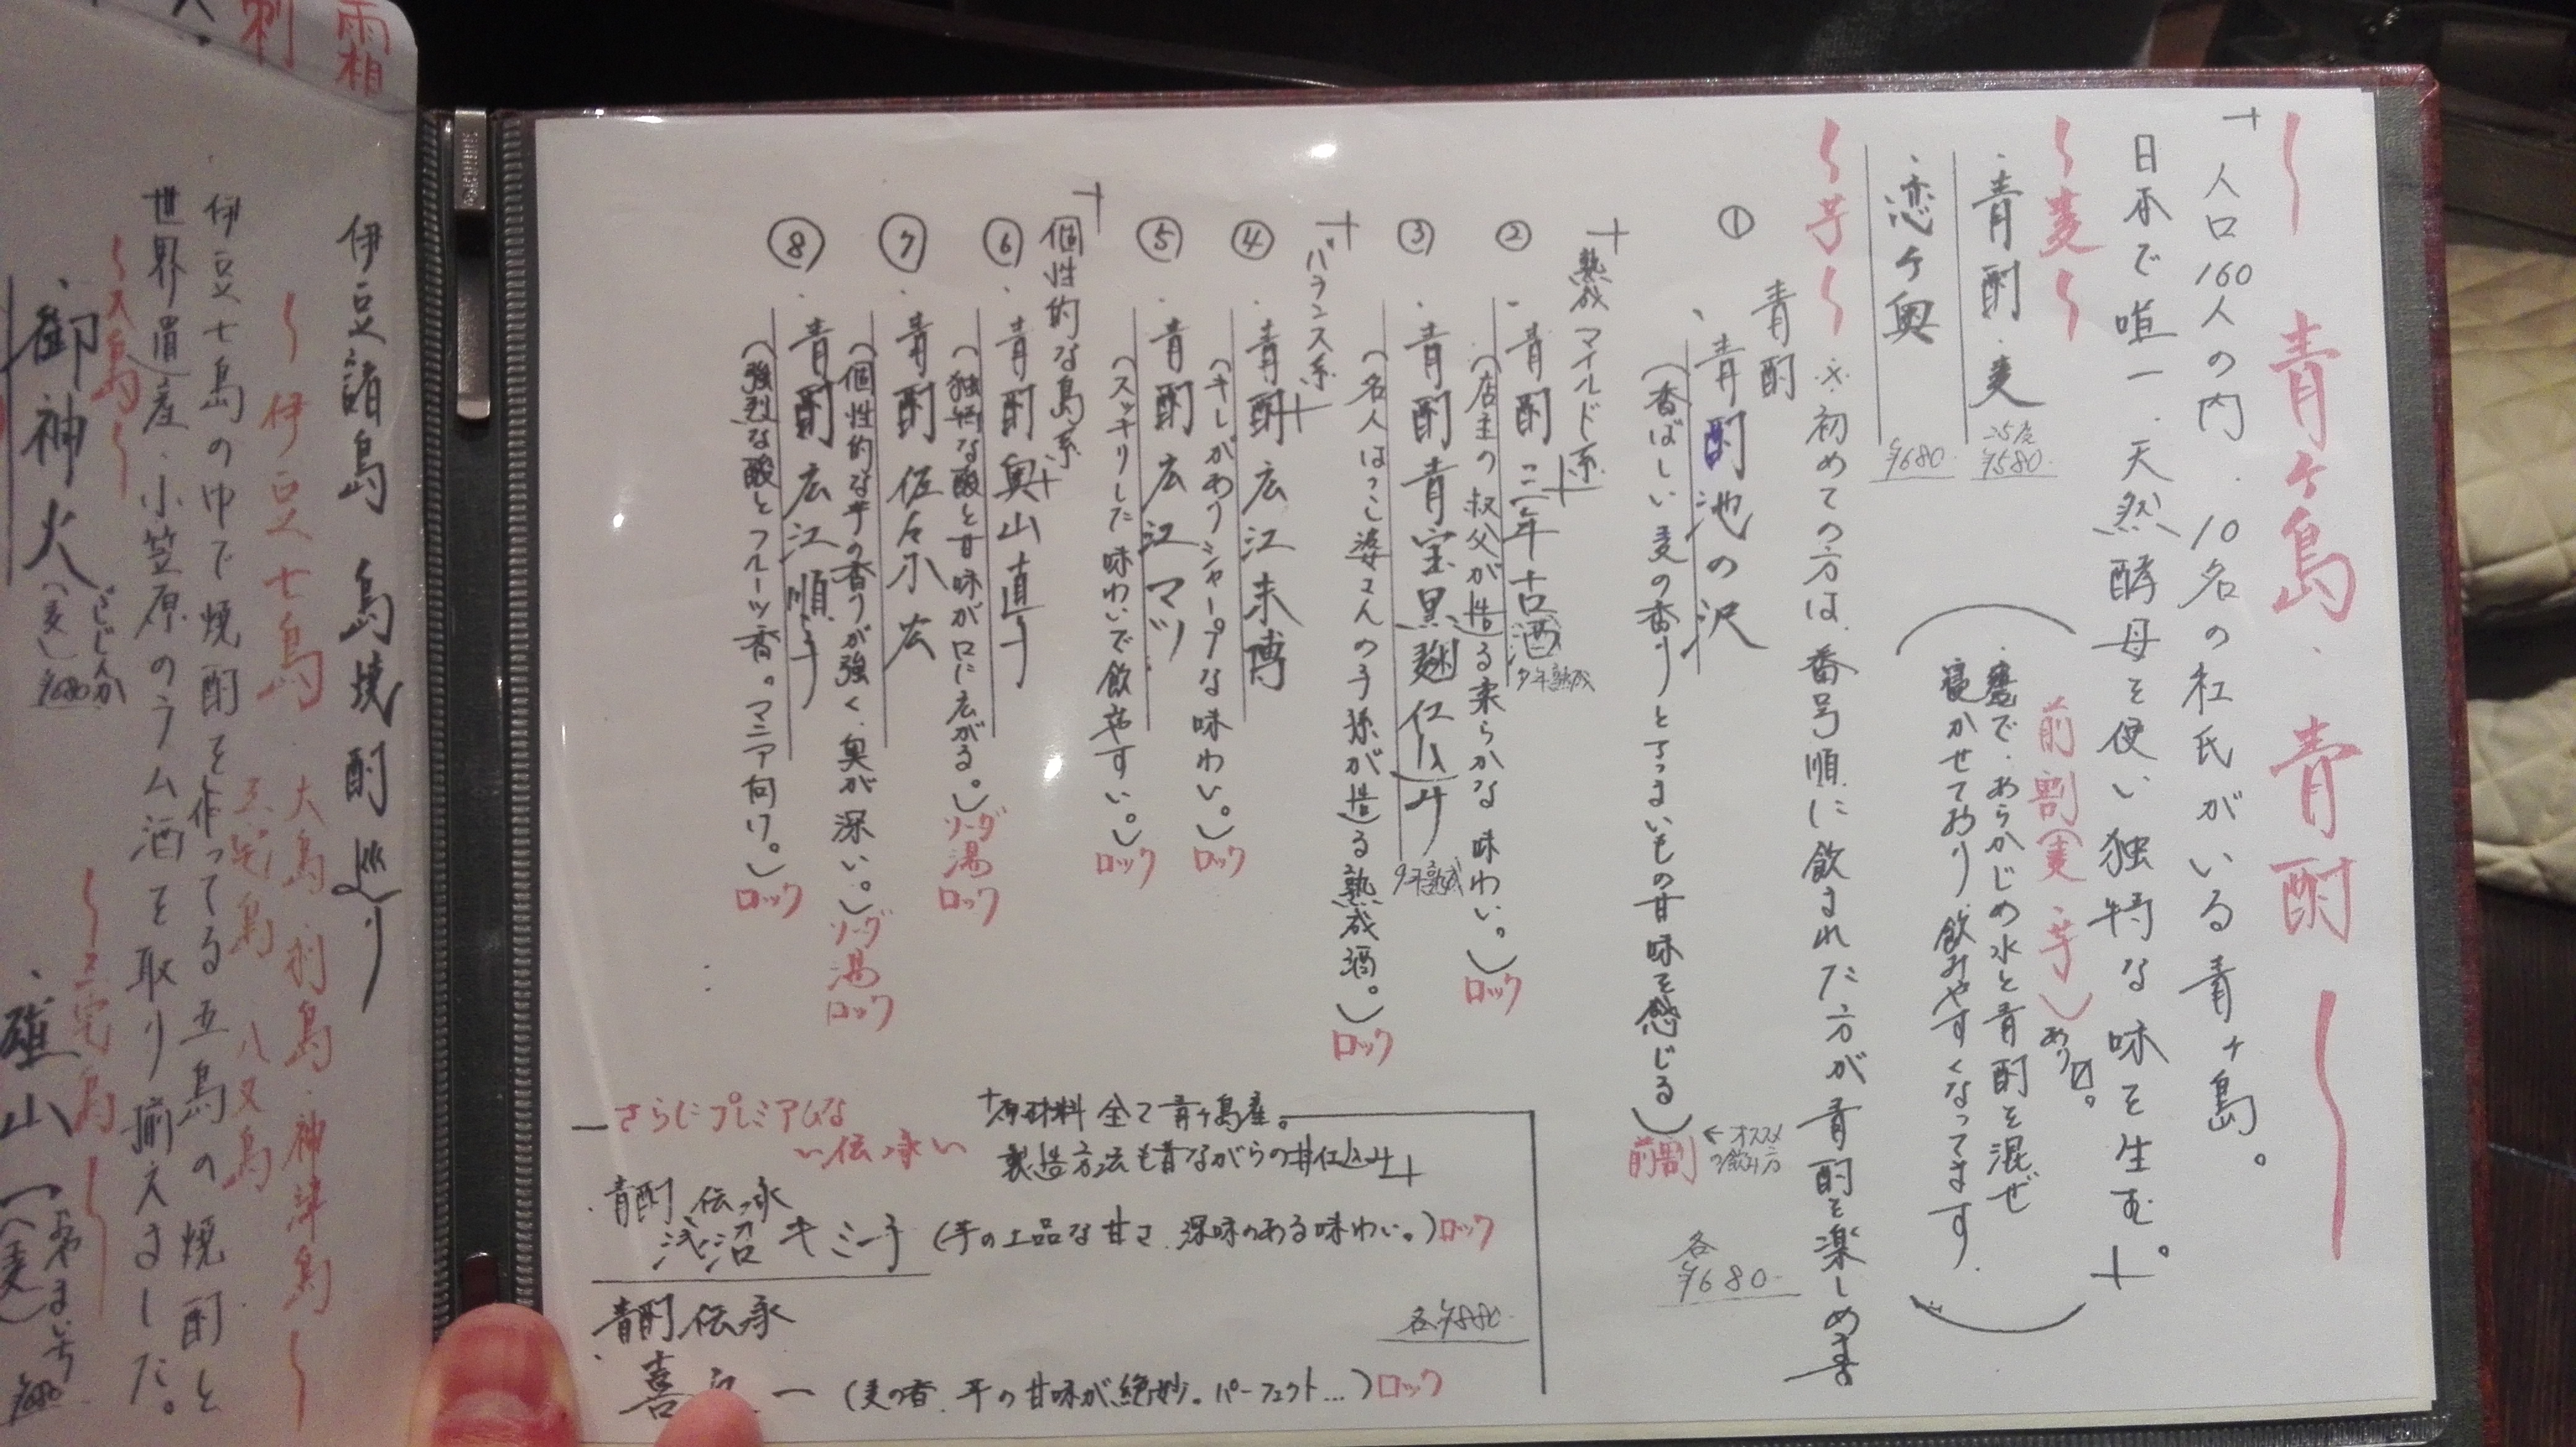 〜青ヶ島・青酎〜
人口160人の内、10名の杜氏がいる青ヶ島。
日本で唯一、天然酵母を使い独特な味を生む。
〜麦〜
・青酎 麦 25度 ¥580-
・恋ヶ奥 ¥680-
前割(麦・芋)あり〼。
(・甕で、あらかじめ水と青酎を混ぜ
寝かせており、飲みやすくなってます。)
〜芋〜 ※初めての方は、番号順に飲まれた方が青酎を楽しめます
青酎
① ・青酎 池の沢
(香ばしい麦の香りとさつまいもの甘味を感じる) 前割 ←オススメの飲み方
各¥680-
熟成マイルド系
② ・青酎 三年古酒 9年熟成
(店主の叔父が造る柔らかな味わい。) ロック
③ ・青酎 青宝 黒麹仕込み 9年熟成
(名人はっこ婆さんの子孫が造る熟成酒。) ロック
バランス系
④ ・青酎 広江末博
(キレがありシャープな味わい。) ロック
⑤ ・青酎 広江マツ
(スッキリした味わいで飲みやすい。) ロック
個性的な島系
⑥ ・青酎 奥山直子
(独特な酸と甘味が口に広がる。) ソーダ 湯 ロック
⑦ ・青酎 佐々木広
(個性的な芋の香りが強く、奥が深い。) ソーダ 湯 ロック
⑧ ・青酎 広江順子
(強烈な酸とフルーツ香。マニア向け。) ロック
さらにプレミアムな
〃伝承〃
原材料 全て青ヶ島産。
製造方法も昔ながらの丼仕込み
・青酎 伝承
浅沼キミ子 (芋の上品な甘さ、深味のある味わい。) ロック
各¥880-
・青酎 伝承
喜 一 (麦の香、芋の甘味が絶妙。パーフェクト…) ロック
霜
刺
伊豆諸島 島焼酎巡り
〜伊豆七島 大島・利島・神津島・三宅島・八丈島〜
伊豆七島の中で焼酎を作ってる五島の焼酎と
世界遺産・小笠原のラム酒を取り揃えました。
〜大島〜
・御神火 ごじんか (麦) ¥680-
〜三宅島〜
・雄山一 おやまいち (麦) ¥680